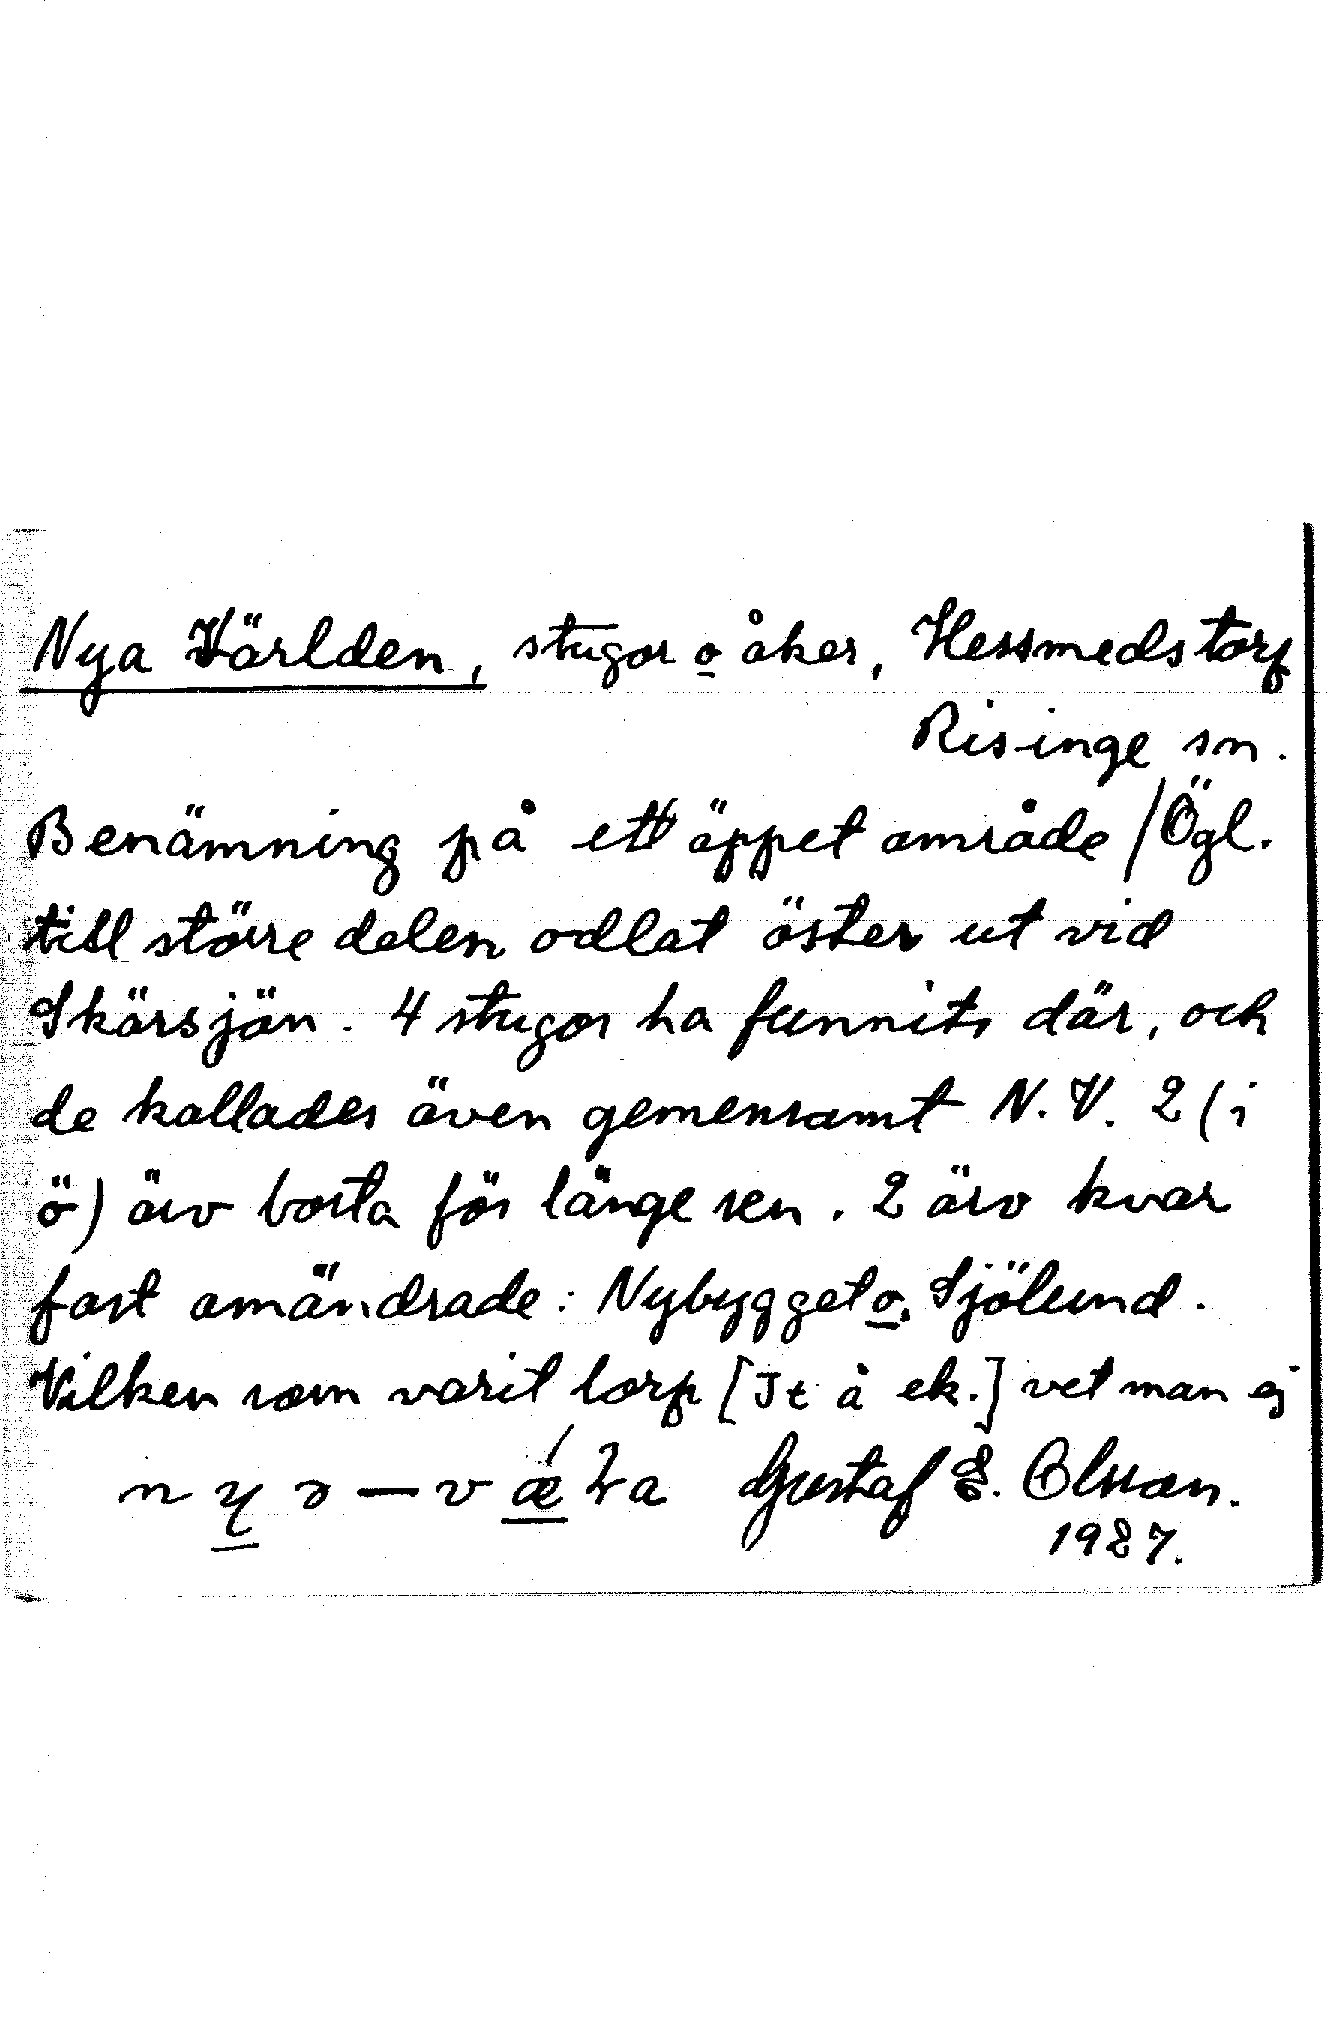 Nya Världen, stugor o åker, Hessmedstorp
Risinge sn.
Benämning på ett öppet område /Ögl.
till större delen odlat öster ut vid
Skärsjön. 4 stugor ha funnits där, och
de kallades även gemensamt N. V. 2 (i
ö) äro borta för länge sen. 2 äro kvar
fast omändrade: Nybygget o. Sjölund.
Vilken som varit torp [Jt å ek.] vet man ej
Gustaf E. Olsson.
1927.